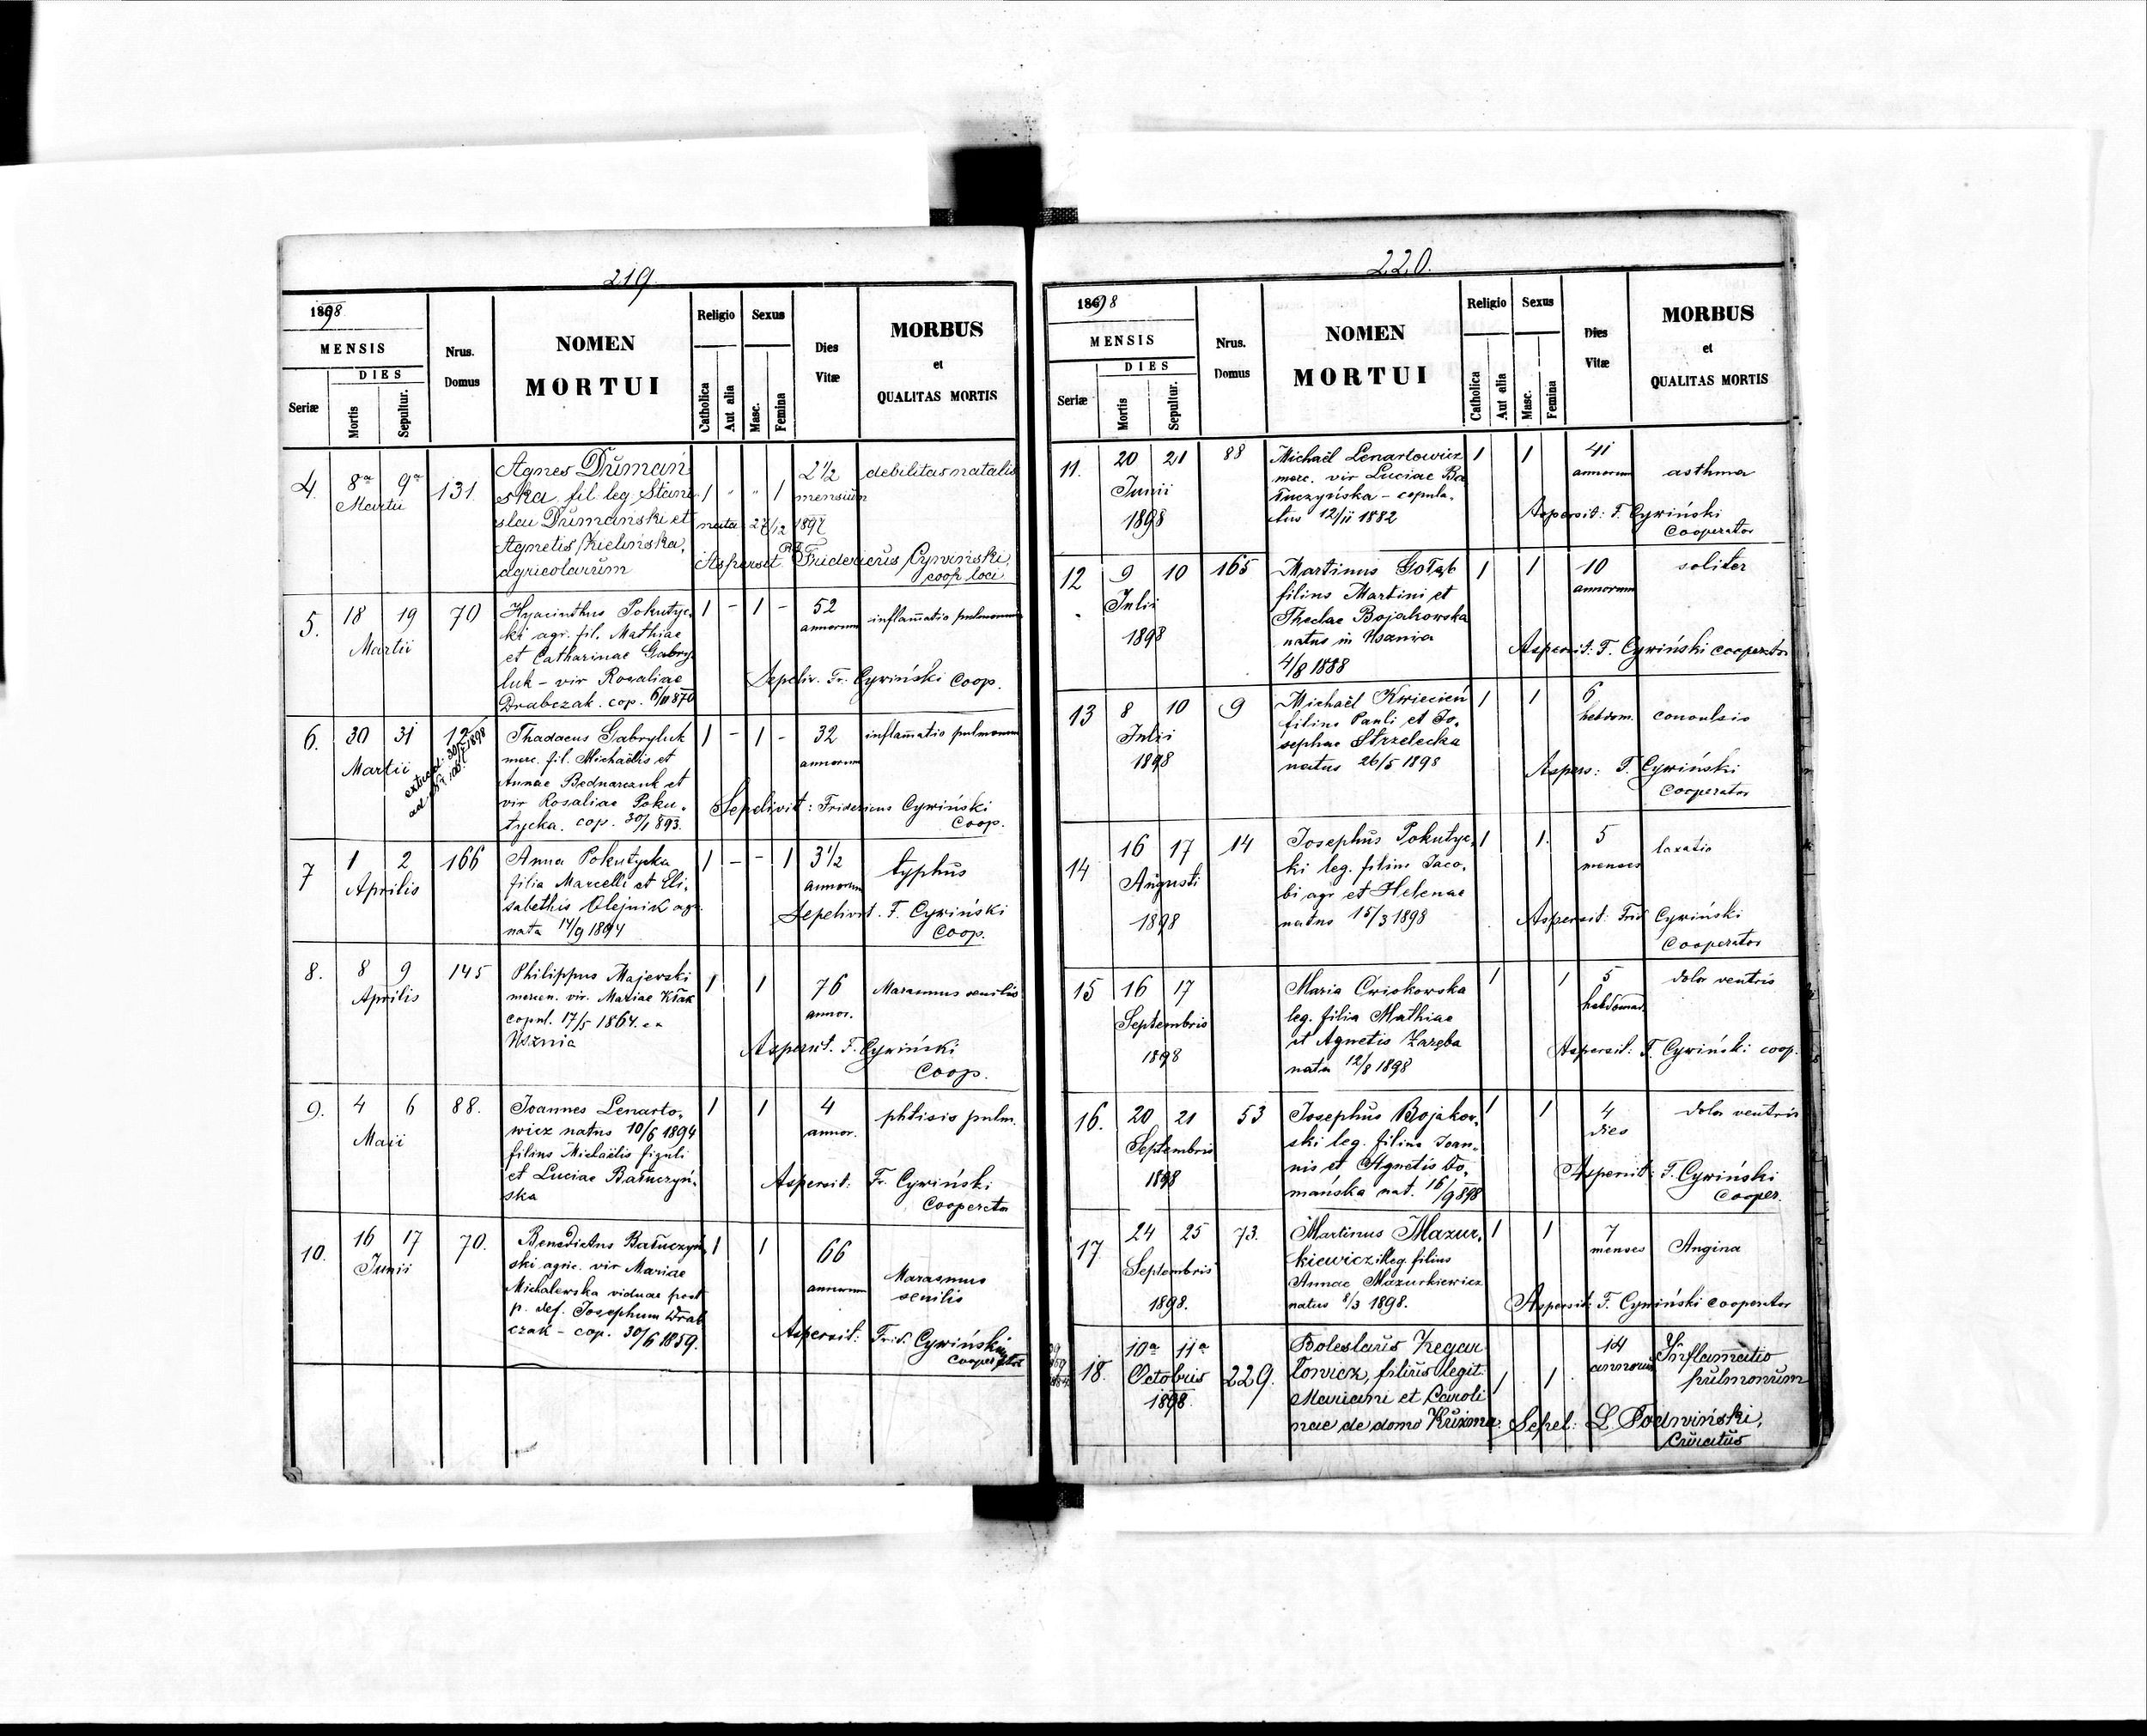 219.
1898
MENSIS
DIES
Seriæ
Mortis
Sepultur.
Nrus.
Domus
NOMEN
MORTUI
Religio
Catholica
Aut alia
Sexus
Masc.
Femina
Dies
Vitæ
MORBUS
et
QUALITAS MORTIS
4. 8a 9a 131. Agnes Dumań 2½ debilitas natalis
Martii ska fil. leg. Stani 1 " " 1 mensium
slai Dumański et nata 27/12 1897
Agnetis Zielińska,
Aspersit Fridericus Cywiński,
agricolarum coop. loci
5. 18 19 70 Hyacinthus Pokutyc- 1 - 1 - 52 inflam̄atio pulmonum
Martii ki agr. fil. Mathiae annorum
et Catharinae Gabry-
luk - vir Rosaliae Sepeliv. Fr. Cywiński Coop.
Drabczak. cop. 6/11 870
6. 30 31 12 Thadaeus Gabryluk 1 - 1 - 32 inflam̄atio pulmonum
Martii merc. fil. Michaëlis et annorum
Annae Bednarczuk et
vir Rosaliae Poku- Sepelivit: Fridericus Cywiński
tycka. cop. 30/1 893. Coop.
7 1 2 166 Anna Pokutycka 1 - - 1 3½ typhus
Aprilis filia Marcelli et Eli- annorum
sabethis Olejnik agr. Sepelivit. F. Cywiński
nata 14/9 1894 Coop.
8. 8 9 145 Philippus Majewski 1 1 76 Marasmus senilis
Aprilis mercen. vir. Mariae Kłak annor.
copul. 17/5 1864. ex
Usznia Aspersit. F. Cywiński
Coop.
9. 4 6 88. Joannes Lenarto- 1 1 4 phtisis pulm.
Maii wicz natus 10/6 1894 annor.
filius Michaëlis figuli
et Luciae Bałuczyń- Aspersit: Fr. Cywiński
ska Cooperator
10. 16 17 70. Benedictus Bałuczyń 1 1 66 Marasmus
Junii ski agric. vir Mariae annorum senilis
Michalewska viduae post
p. def. Josephum Drab Aspersit: Frid. Cywiński
czak - cop. 30/6 1859. Cooperator
220.
1898
MENSIS
DIES
Seriæ
Mortis
Sepultur.
Nrus.
Domus
NOMEN
MORTUI
Religio
Catholica
Aut alia
Sexus
Masc.
Femina
Dies
Vitæ
MORBUS
et
QUALITAS MORTIS
11. 20 21 88 Michaël Lenartowicz 1 1 41 asthma
Junii merc. vir Luciae Ba annorum
1898 łuczyńska - copula- Aspersit: F. Cywiński
tus 12/II 1882 Cooperator
12 9 10 165 Martinus Gołąb 1 1 10 soliter
Julii filius Martini et annorum
Theclae Bojakowska
1898 natus in Usznia Aspersit: F. Cywiński cooperator
4/8 1888
13 8 10 9 Michaël Kwiecień 1 1 6
Julii filius Pauli et Jo- hebdom. convulsio
sephae Strzelecka
1898 natus 26/5 1898 Aspers: F. Cywiński
Cooperator
14 16 17 14 Josephus Pokutyc- 1 1. 5 laxatio
Augusti ki leg. filius Jaco- menses
bi agr et Helenae
1898 natus 15/3 1898 Aspersit: Frid Cywiński
Cooperator
15 16 17 Maria Ćwiokowska 1 1 5 dolor ventris
Septembris leg. filia Mathiae hebdomad.
et Agnetis Zaręba Aspersit: F. Cywiński coop.
1898 nata 12/8 1898
16. 20 21 53 Josephus Bojakow- 1 1 4 dolor ventris
Septembris ski leg. filius Joan- dies
nis et Agnetis Do- Aspersit: F. Cywiński
1898 mańska nat. 16/9 898 Cooper.
17. 24 25 73. Martinus Mazur- 1 1 7 Angina
Septembris kiewicz illeg. filius menses
Annae Mazurkiewicz
1898. natus 8/3 1898. Aspersit: F. Cywiński cooperator
18. 10a 11a 229. Boleslaus Zegar 14 Inflam̄atio
Octobris towicz, filius legit. 1 1 annorum pulmonum
1898. Mariani et Caroli
nae de domo Kuźma. Sepel: L. Podwiński,
Curatus